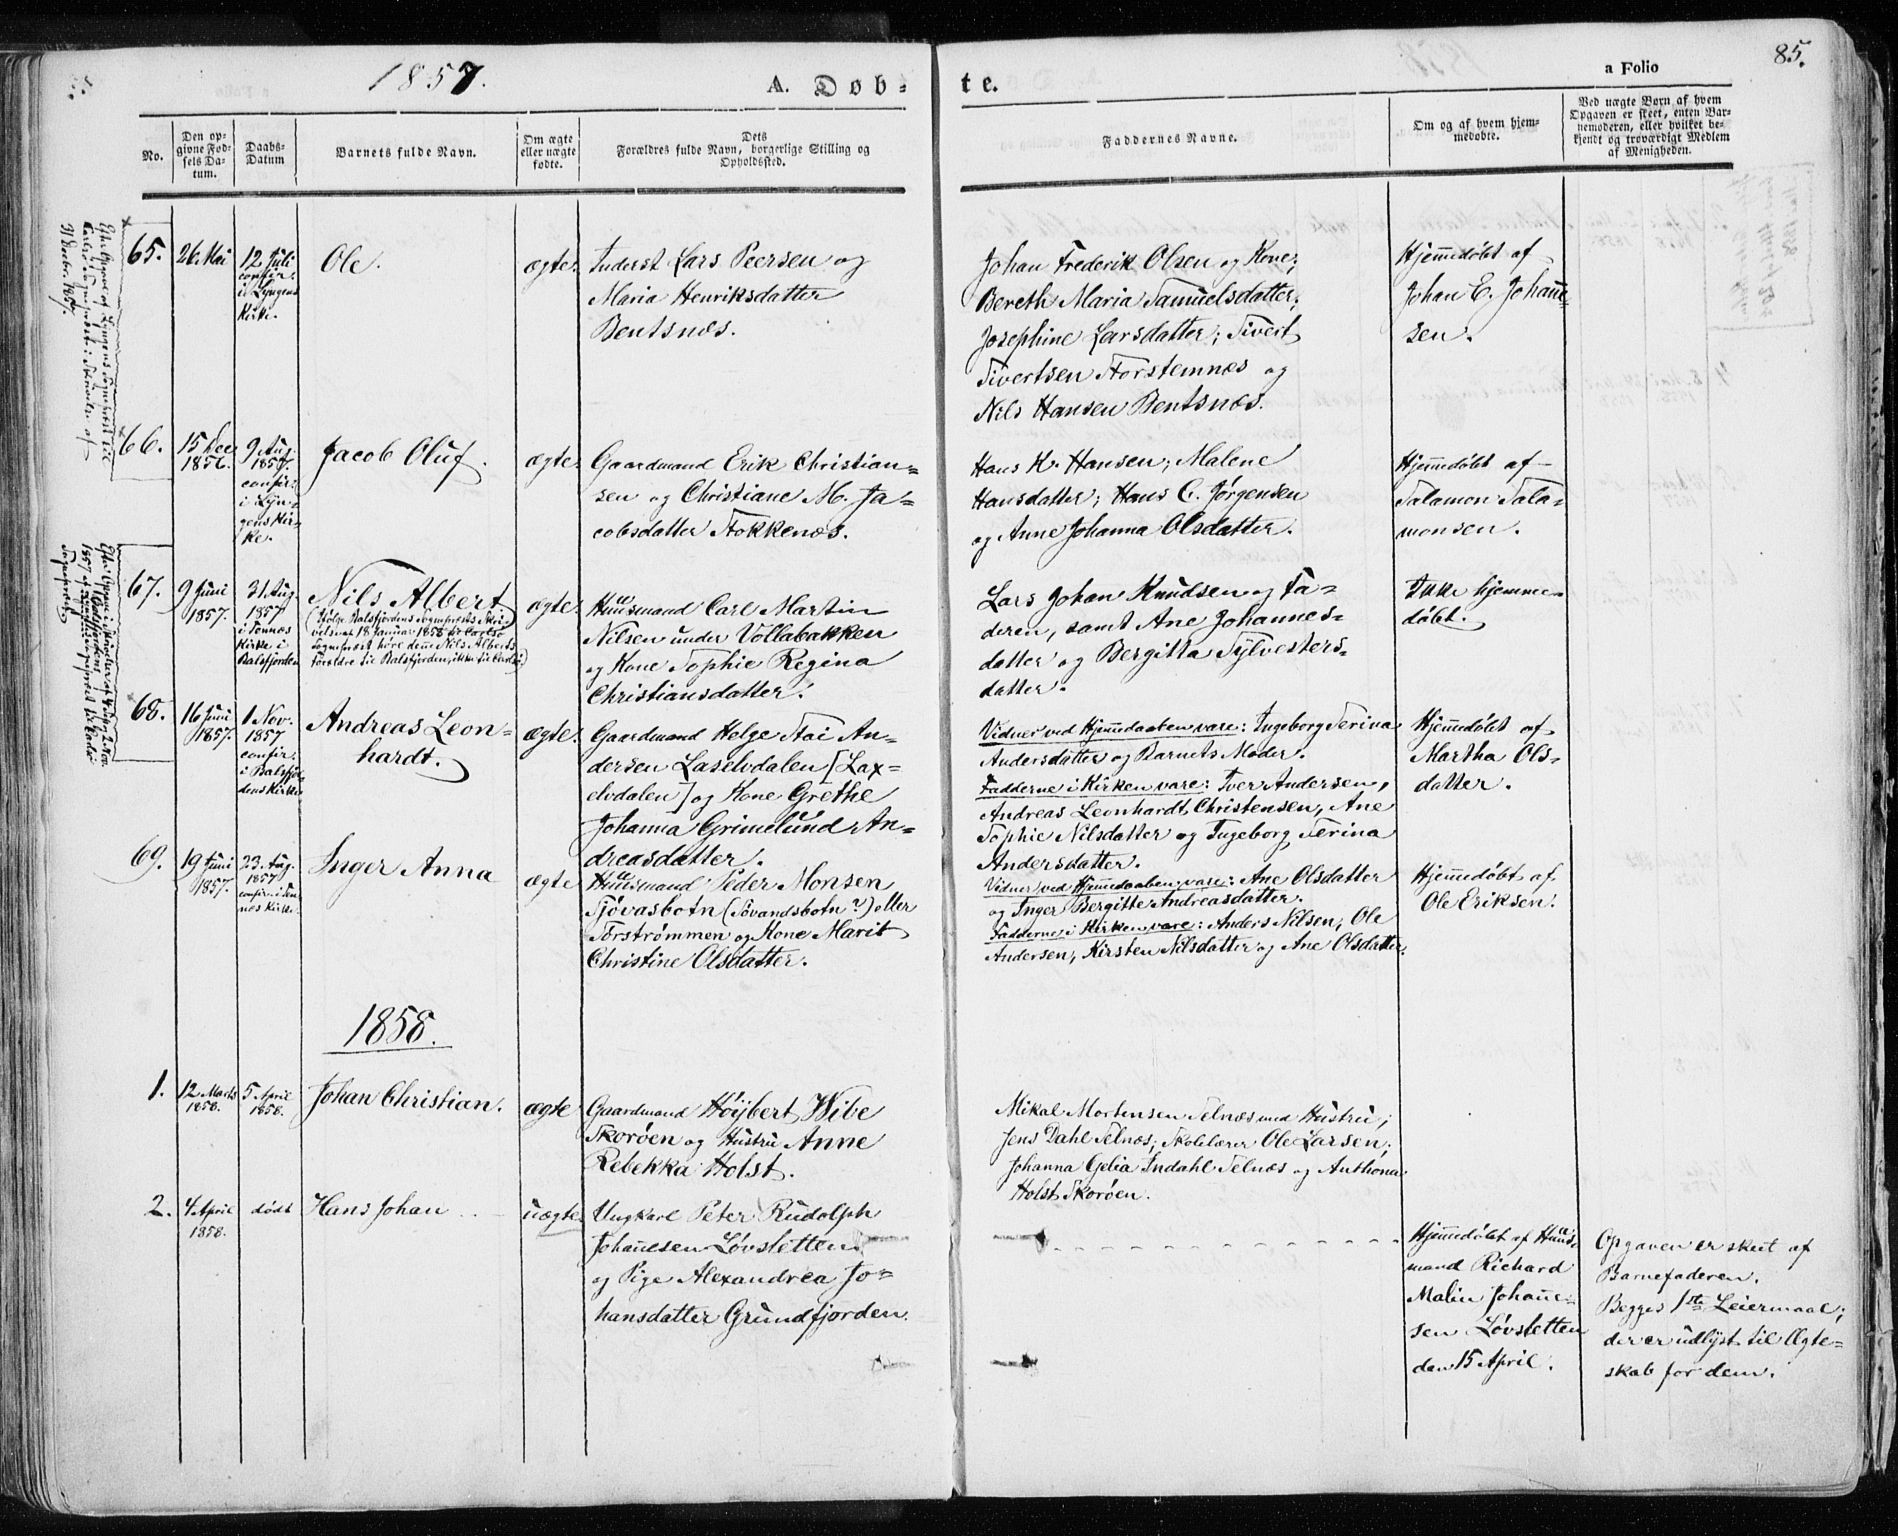 1857.
A. Døb-
te.
a Folio
85.
No.
Den op-
givne Fød-
sels Da-
tum.
Daabs-
Datum
Barnets fulde Navn.
Om ægte
eller uægte
fødte.
Dets
Forældres fulde Navn, borgerlige Stilling og
Opholdssted.
Faddernes Navne.
Om og af hvem hjem-
medøbte.
Ved uægte Børn af hvem
Opgaven er skeet, enten Bar-
nemoderen, eller hvilket be-
kjendt og troværdigt Medlem
af Menigheden.
65.
26. Mai
12 Juli
confir.
i Lyngens
Kirke.
Ole.
ægte.
Inderst Lars Peersen og
Maria Henriksdatter
Bentsnæs.
Johan Frederik Olsen og Kone;
Bereth Maria Samuelsdatter;
Josephine Larsdatter; Sivert
Sivertsen Storstennæs og
Nils Hansen Bentsnæs.
Hjemmedøbt af
Johan E. Johanne-
sen.
66.
15 Dec
1856.
9 Aug.
1857.
confir.
i Lyn-
gens Kir-
ke.
Jacob Oluf.
ægte.
Gaardmand Erik Christian-
sen og Christiane M. Ja-
cobsdatter Stokkenæs.
Hans K. Hansen; Malene
Hansdatter; Hans C. Jørgensen
og Anne Johanna Olsdatter.
Hjemmedøbt af
Salamon Sala-
monsen.
Efter Opgave af Lyngens Sognepræst til
Carlsø Sognepræst i Skrivelse af
31 Decbr. 1857.
67.
9 Juni
1857.
31 Aug.
1857
i Tennæs
Kirke i
Balsfjorden
Nils Albert
(Ifølge Balsfjordens Sognepræsts Skri-
velse af 18 Januar 1858 til Carlsø
Sognepræst høre dem Nils Alberts
Forældre til Balsfjorden, ikke til Carlsø)
ægte.
Huusmand Carl Martin
Nilsen under Vollabakken
og Kone Sophie Regina
Christiansdatter.
Lars Johan Knudsen og Fa-
deren, samt Ane Johannes-
datter og Bergitta Sylvesters-
datter.
Ikke hjemme-
døbt.
68.
16 Juni
1857.
1 Nov.
1857
confir.
i Balsfjor-
dens Kirke
Andreas Leon-
hardt.
ægte.
Gaardmand Helge Stai An-
dersen Laselvdalen [Lax-
elvdalen] og Kone Grethe
Johanna Grimelund An-
dreasdatter.
Vidner ved Hjemmedaaben vare: Ingeborg Serina
Andersdatter og Barnets Moder.
Fadderne i Kirken vare: Iver Andersen,
Andreas Leonhardt Christensen, Ane
Sophie Nilsdatter og Ingeborg Serina
Andersdatter.
Hjemmedøbt af
Martha Ols-
datter.
69.
19 Juni
1857.
23. Aug.
1857
confir. i Ten-
næs Kirke
Inger Anna
ægte
Huusmand Peder Monsen
Sjøvasbotn (Søvandsbotn?) eller
Storstrømmen og Kone Marit
Christine Olsdatter.
Vidner ved Hjemmedaaben vare: Ane Olsdatter
og Inger Bergitte Andreasdatter.
Fadderne i Kirken vare: Anders Nilsen, Ole
Andersen, Kirsten Nilsdatter og Ane Olsdatter.
Hjemmedøbt af
Ole Eriksen.
1858.
1.
12 Marts
1858.
5 April
1858.
Johan Christian.
ægte
Gaardmand Höijbert Wibe
Skorøen og Hustru Anne
Rebekka Holst.
Mikal Mortensen Selnæs med Hustru;
Jens Dahl Selnæs; Skolelærer Ole Larsen;
Johanna Gelia Indahl Selnæs og Anthona
Holst Skorøen.
2.
4. April
1858.
dødt
Hans Johan
uægte.
Ungkarl Peter Rudolph
Johannesen Løvsletten
og Pige Alexandrea Jo-
hansdatter Grundfjorden.
Hjemmedøbt af Huus-
mand Richard
Malin Johanne-
sen Løvsletten
den 15 April.
Opgaven er skeet af
Barnefaderen.
Begges 1ste Leiermaal;
der er udlyst til Ægte-
skab for dem.